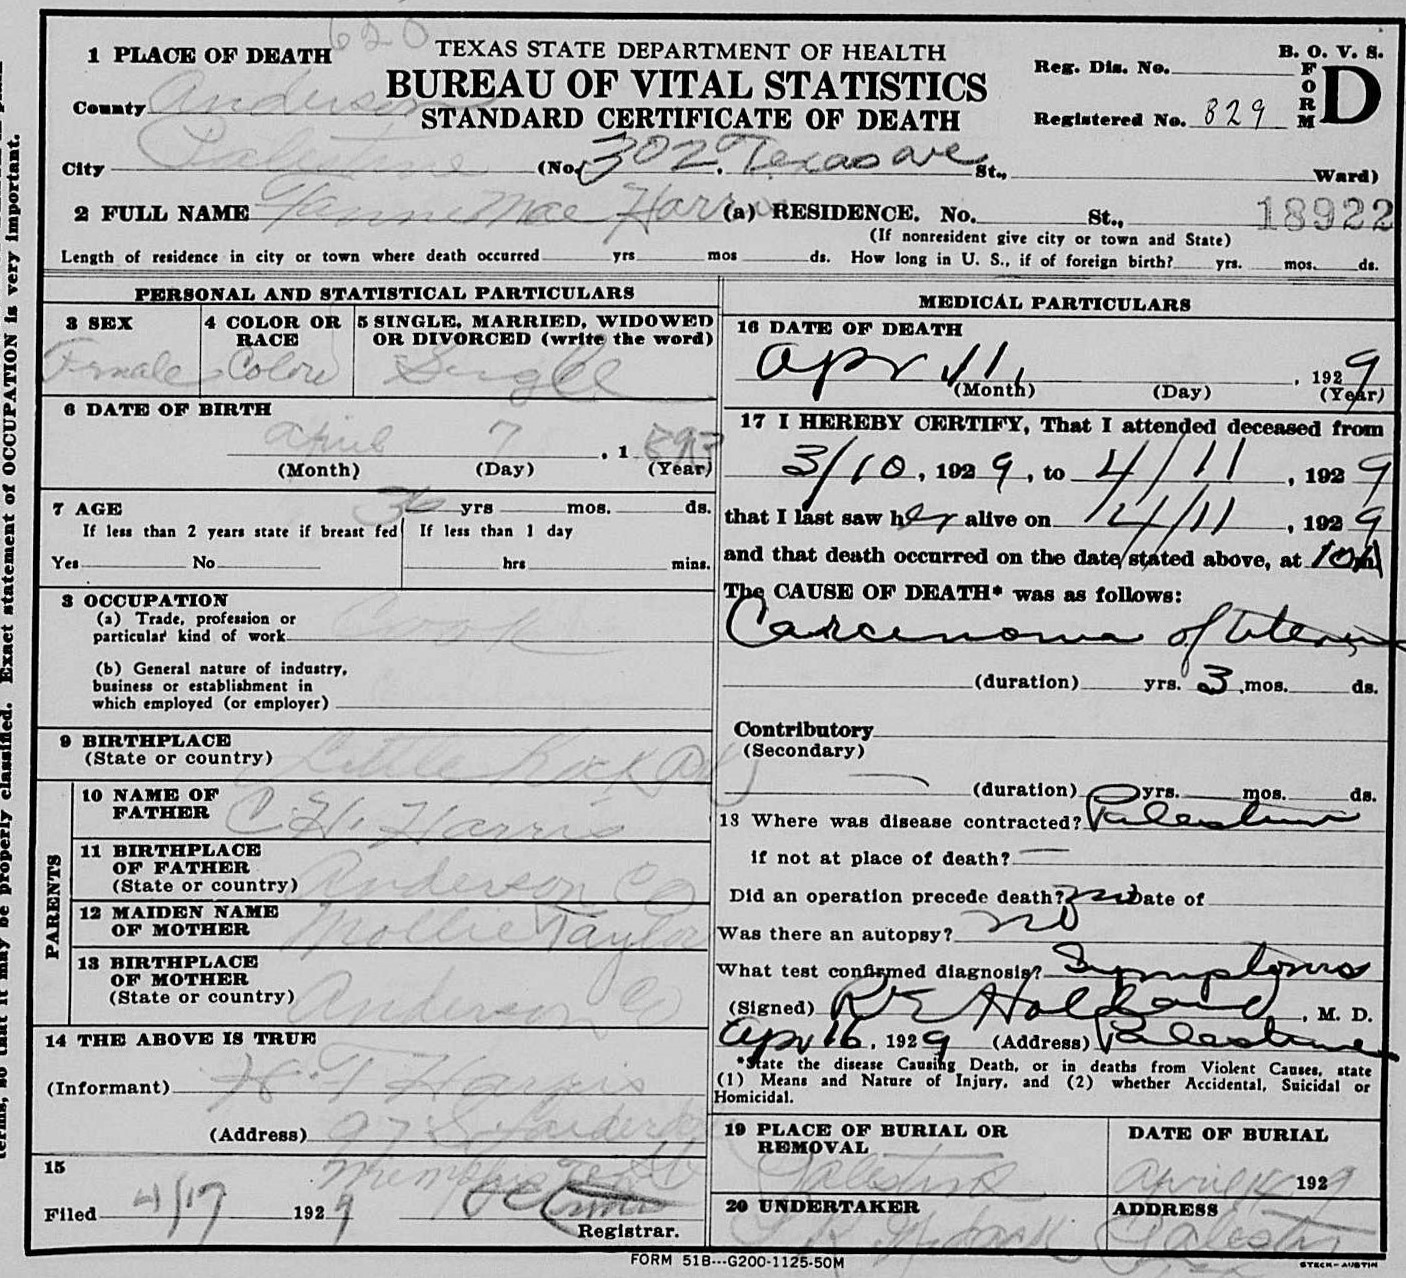 620
TEXAS STATE DEPARTMENT OF HEALTH
B. O. V. S.
1 PLACE OF DEATH
BUREAU OF VITAL STATISTICS
Reg. Dis. No.
FORM D
County Anderson
STANDARD CERTIFICATE OF DEATH
Registered No. 829
City Palestine (No. 302 Texas ave St., Ward)
2 FULL NAME Fannie Mae Harris (a) RESIDENCE. No. St., 18922
(If nonresident give city or town and State)
Length of residence in city or town where death occurred yrs mos ds. How long in U. S., if of foreign birth? yrs. mos. ds.
PERSONAL AND STATISTICAL PARTICULARS
3 SEX
Female
4 COLOR OR RACE
Colore
5 SINGLE, MARRIED, WIDOWED
OR DIVORCED (write the word)
Single
6 DATE OF BIRTH
April 7 , 1893
(Month) (Day) (Year)
7 AGE 36 yrs mos. ds.
If less than 2 years state if breast fed If less than 1 day
Yes No hrs mins.
8 OCCUPATION
(a) Trade, profession or
particular kind of work Cook
(b) General nature of industry,
business or establishment in
which employed (or employer)
9 BIRTHPLACE
(State or country) Little Rock Ark
PARENTS
10 NAME OF
FATHER C. H. Harris
11 BIRTHPLACE
OF FATHER
(State or country) Anderson Co
12 MAIDEN NAME
OF MOTHER Mollie Taylor
13 BIRTHPLACE
OF MOTHER
(State or country) Anderson Co
14 THE ABOVE IS TRUE
(Informant) Harris
(Address) 97 S
Memphis
15
Filed 4/17 1929
Registrar.
MEDICAL PARTICULARS
16 DATE OF DEATH
apr 11, , 1929
(Month) (Day) (Year)
17 I HEREBY CERTIFY, That I attended deceased from
3/10, 1929, to 4/11, 1929
that I last saw her alive on 4/11, 1929
and that death occurred on the date stated above, at
The CAUSE OF DEATH* was as follows:
Carcinoma of Uterus
(duration) yrs. 3 mos. ds.
Contributory
(Secondary)
(duration) yrs. mos. ds.
18 Where was disease contracted? Palestine
if not at place of death?
Did an operation precede death? no Date of
Was there an autopsy? no
What test confirmed diagnosis? Symptoms
(Signed) Holland, M. D.
apr 16, 1929 (Address) Palestine
*State the disease Causing Death, or in deaths from Violent Causes, state
(1) Means and Nature of Injury, and (2) whether Accidental, Suicidal or
Homicidal.
19 PLACE OF BURIAL OR
REMOVAL
Palestine
DATE OF BURIAL
April 14 1929
20 UNDERTAKER
ADDRESS
Palestine
FORM 51B---G200-1125-50M
STECK-AUSTIN
Exact statement of OCCUPATION is very important.
terms, so that it may be properly classified.